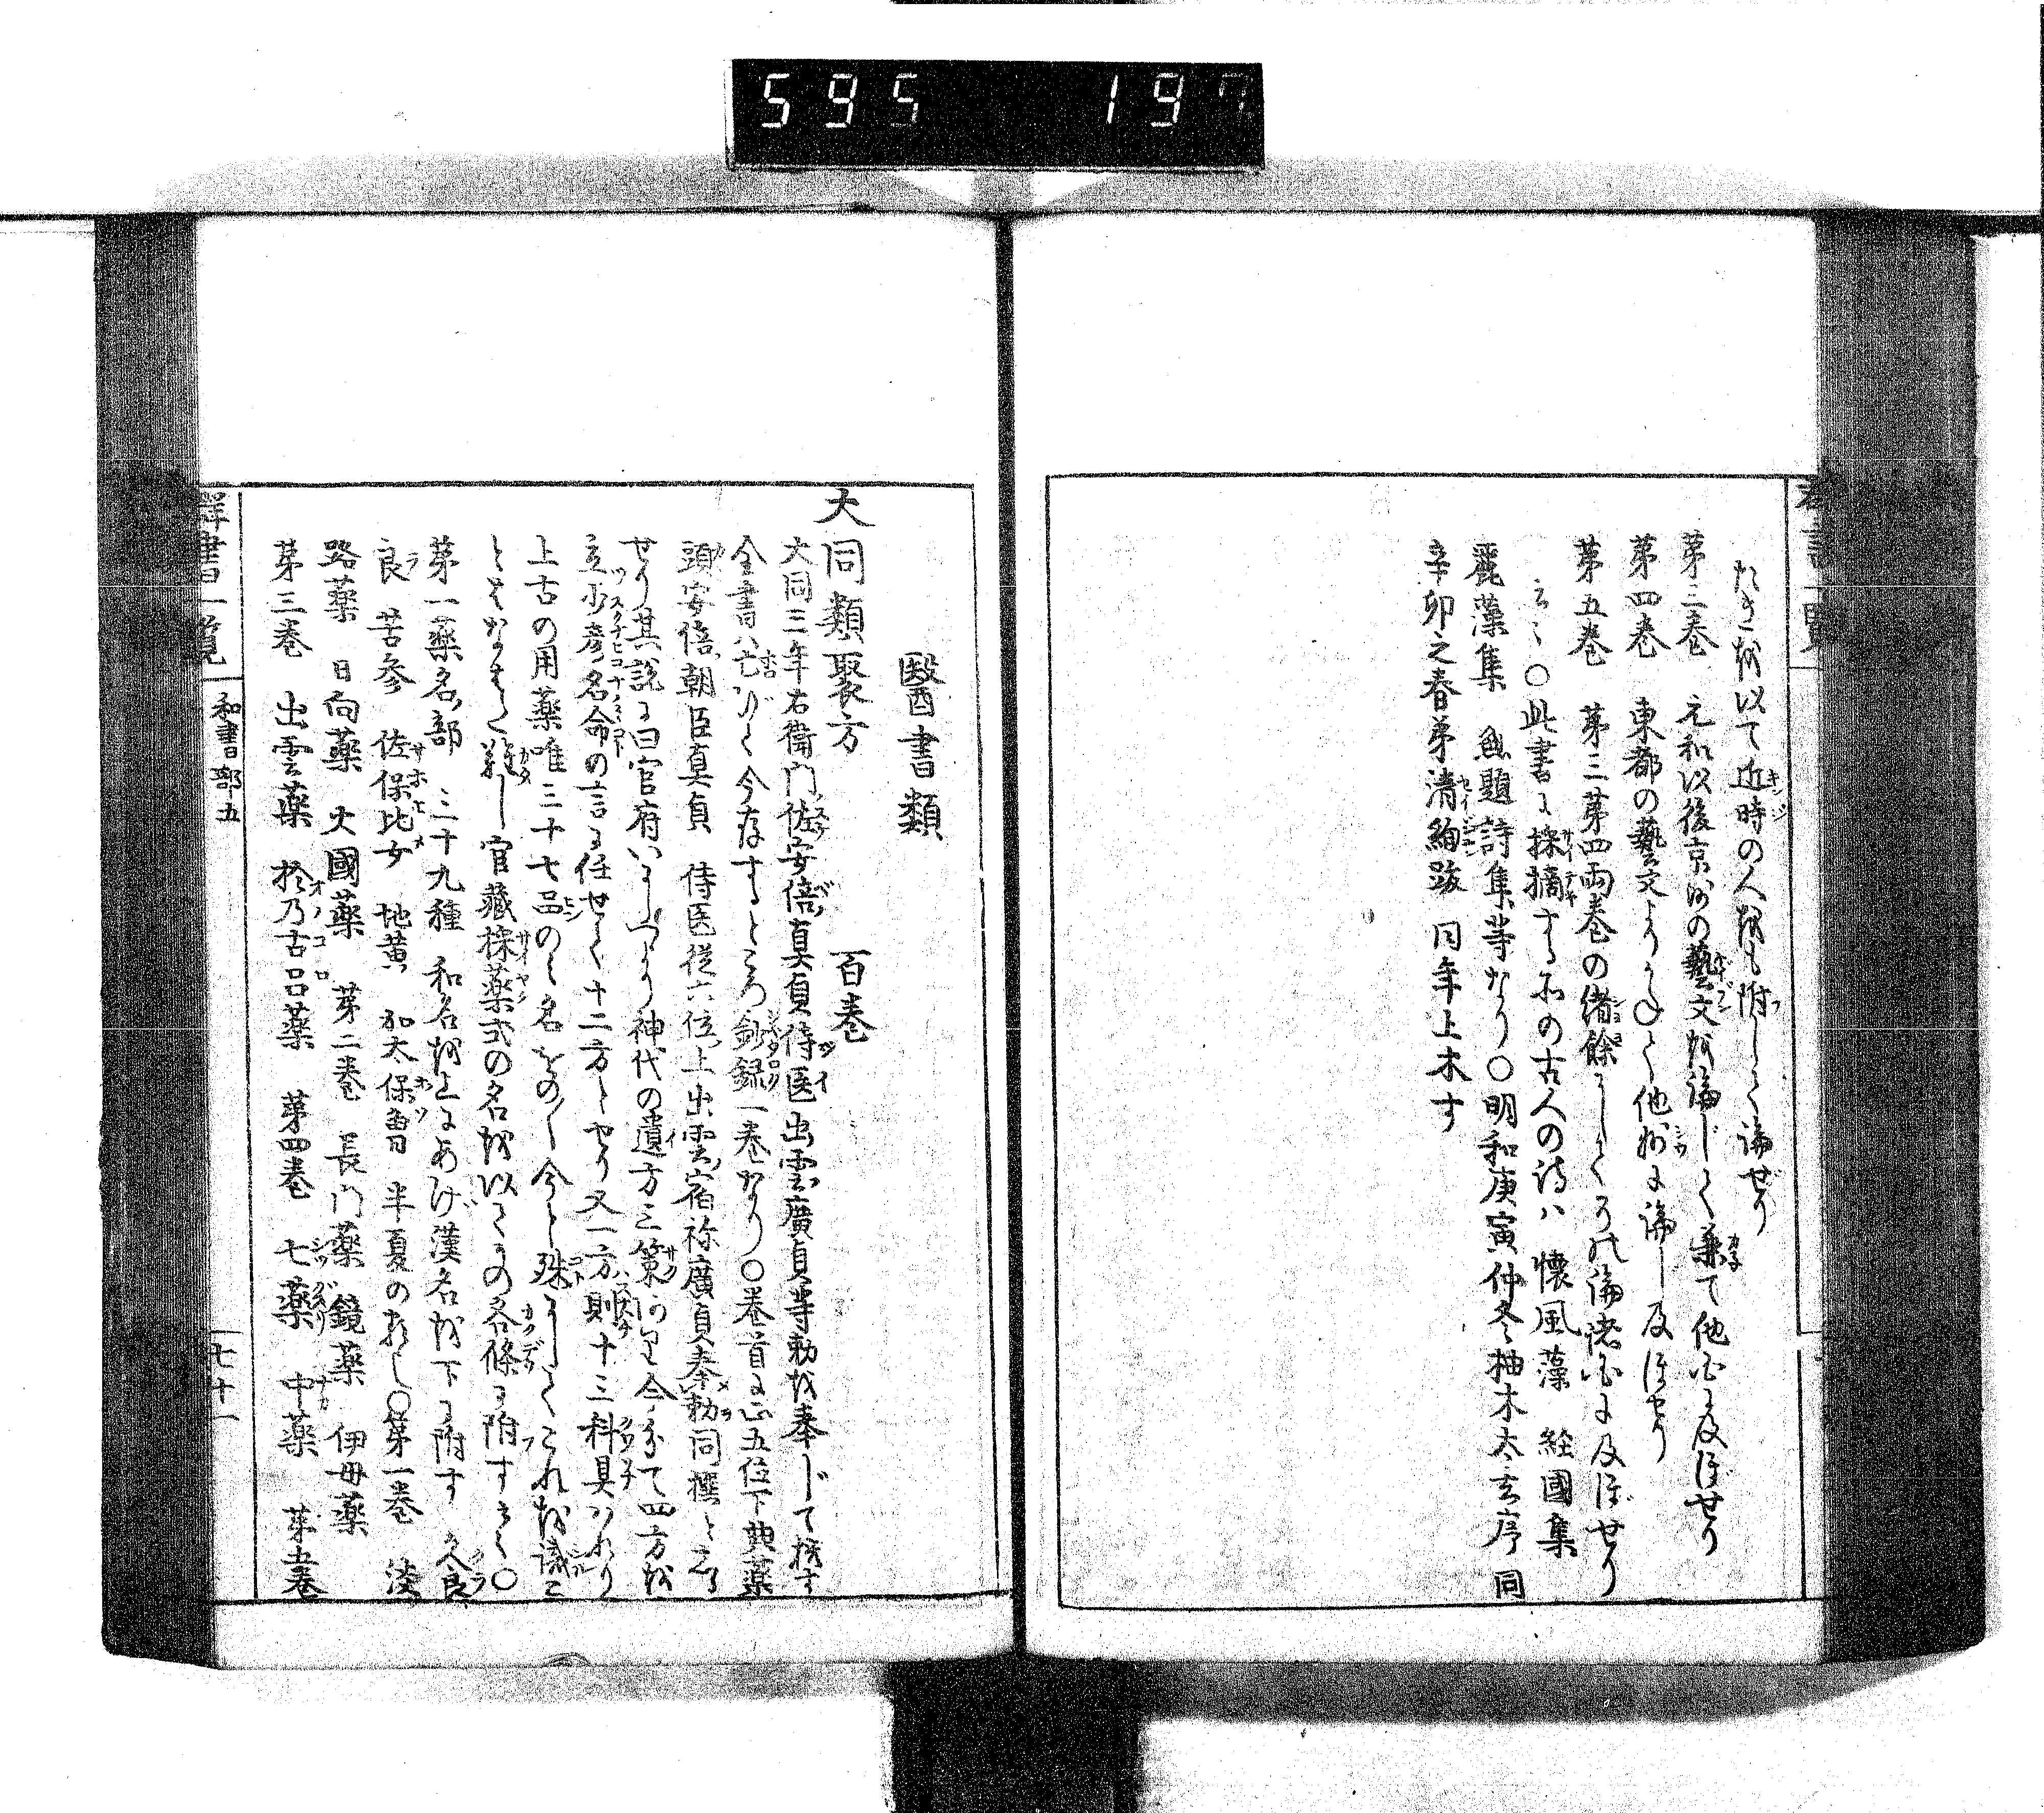 595 19
群書一覧
たるを以て近時の人をも附して論ぜり
第三巻 元和以後京師の藝文を論じて兼て他州に及ぼせり
第四巻 東都の藝文より
他州に論し及ぼせり
第五巻 第三第四両巻の緒餘にして
論諸州に及ぼせり
云々○此書に採摘する所の古人の詩ハ 懐風藻 経國集
麗藻集 無題詩集等なり○明和庚寅仲冬柚木太玄序 同
辛卯之春弟清絢跋 同年上木す
醫書類
大同類聚方 百巻
大同三年右衛門佐安倍真貞侍医出雲廣貞等勅を奉じて撰す
全書ハ亡びて今存するところ鈔録一巻なり○巻首に正五位下典薬
頭安倍朝臣真貞 侍医従六位上出雲宿祢廣貞奉勅同撰と
せり其説に曰官府
神代の遺方三策
今分て四方を
立少彦名命の言に任せて十二方とせり又一方則十三科具
上古の用薬唯三十七品のミ名
今と殊にしてこれを識こ
と
難し官藏採薬式の名を以て
の各條に附すと云○
第一薬名部 三十九種 和名を上にあげ漢名を下に附す 久良
良 苦参 佐保比女 地黄 加太保曽 半夏の類し○第一巻 淡
路薬 日向薬 大國薬 第二巻 長門薬 鏡薬 伊毎薬
第三巻 出雲薬 於乃古呂薬 第四巻 七薬 中薬 第五巻
群書一覧 和書部五 七十一